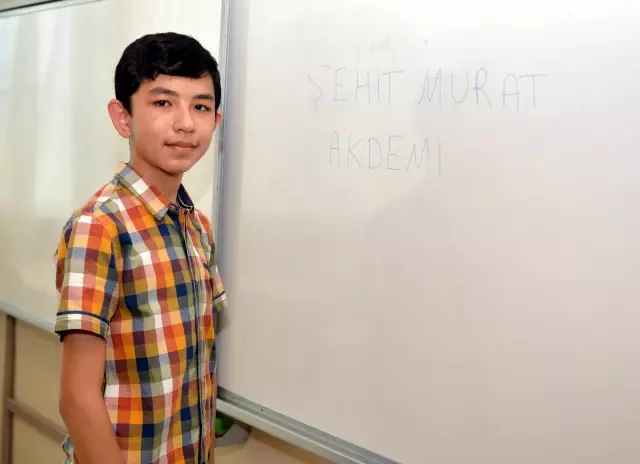 ŞEHIT MURAT
AKDEMI